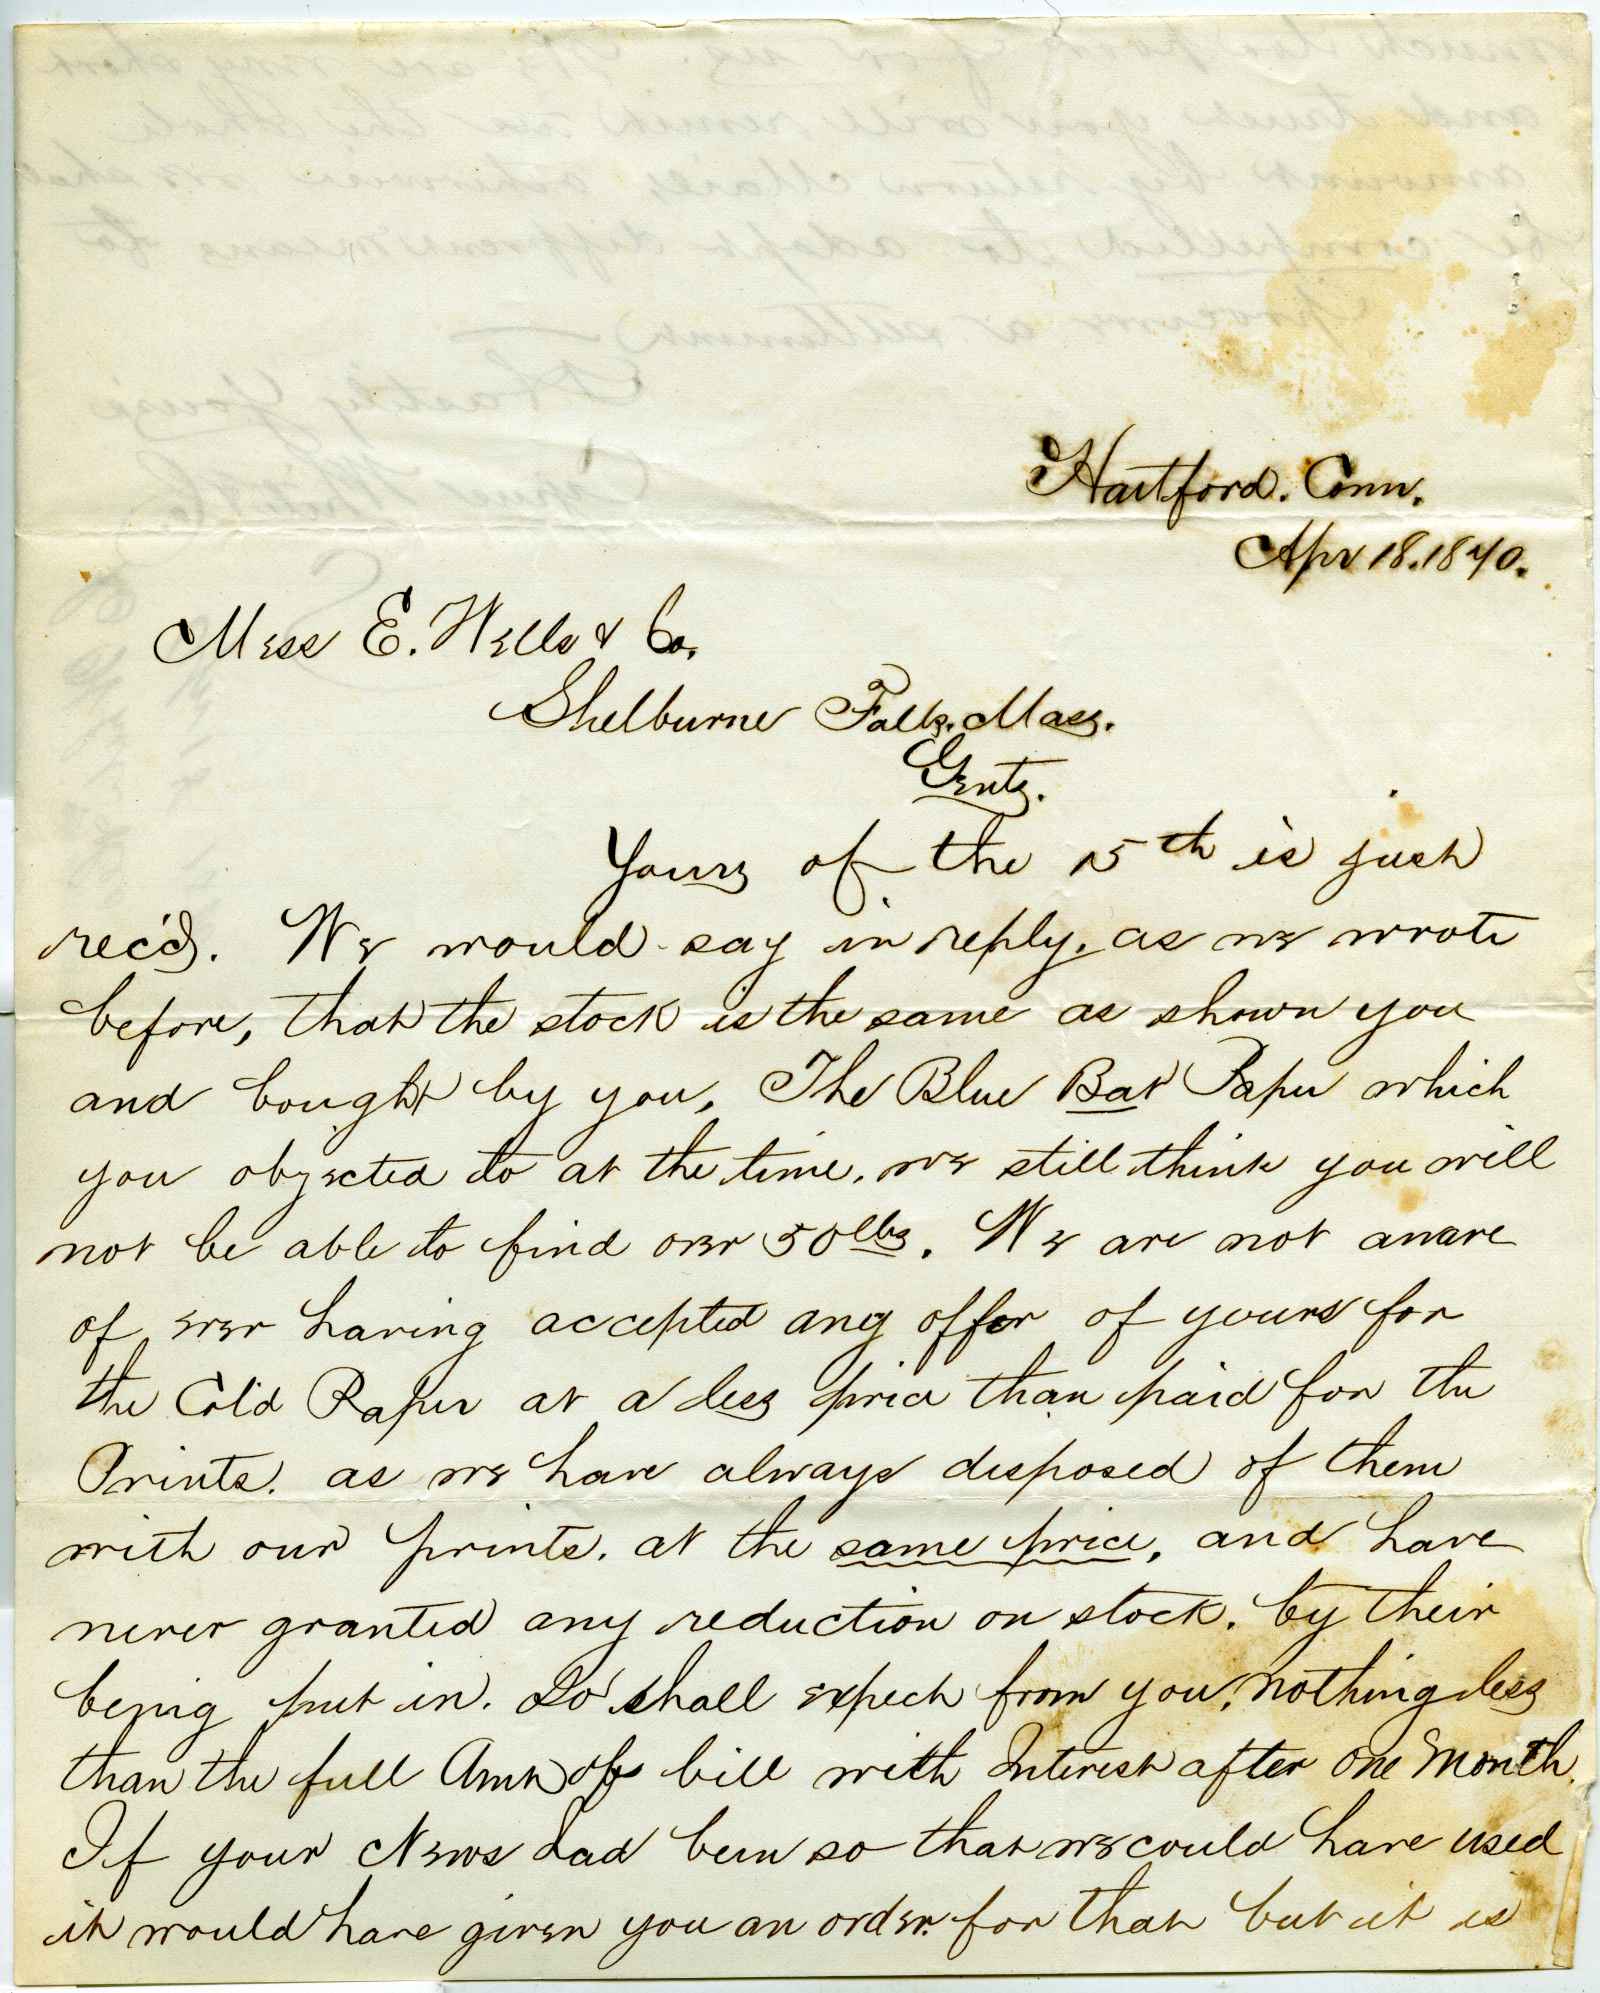 Hartford. Conn.
Apr 18. 1870.
Mess E. Wells & Co.
Shelburne Falls. Mass.
Gents.
Yours of the 15th is just
rec'd. We would say in reply, as we wrote
before, that the stock is the same as shown you
and bought by you, The Blue Bat Paper which
you objected to at the time. we still think you will
not be able to find over 50 lbs. We are not aware
of ever having accepted any offer of yours for
the Col'd Paper at a less price than paid for the
Prints. as we have always disposed of them
with our prints. at the same price, and have
never granted any reduction on stock. by their
being put in. So shall expect from you, nothing less
than the full Amt of bill with Interest after one month.
If your News had been so that we could have used
it would have given you an order for that but it is